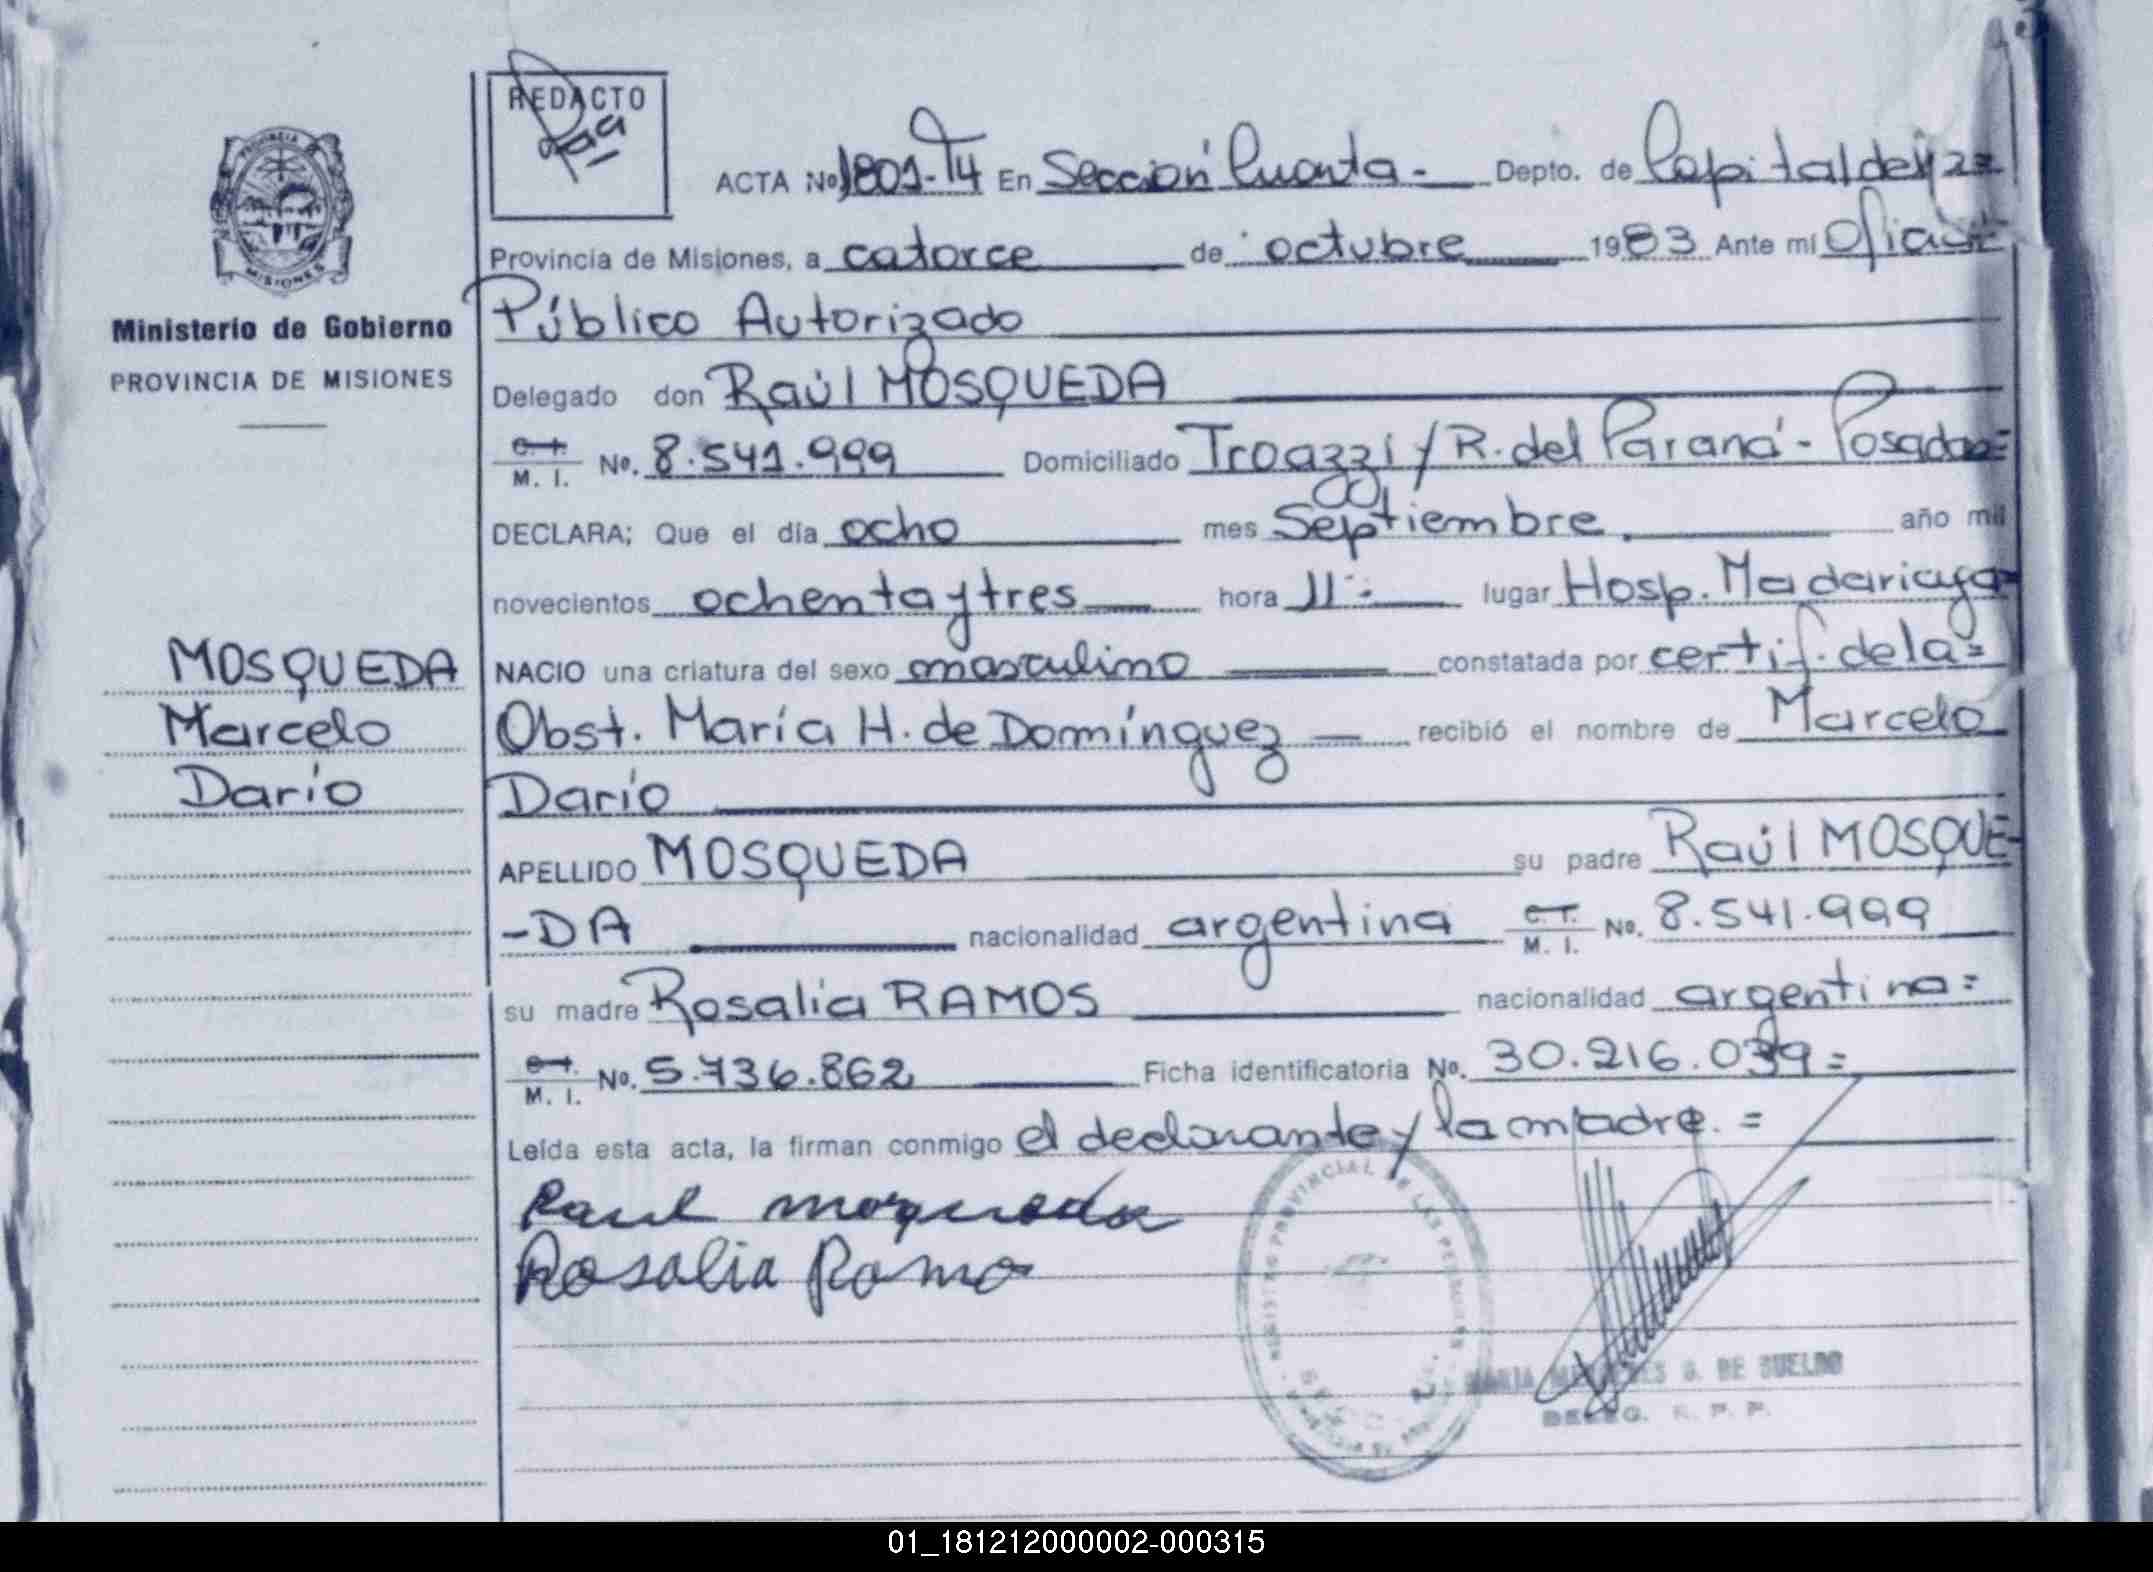 REDACTO
ACTA No 1801-T4 En Sección Cuarta - Depto. de Capital de
Provincia de Misiones, a catorce de octubre 1983 Ante mí Oficial
Público Autorizado
Ministerio de Gobierno
PROVINCIA DE MISIONES
Delegado don Raúl MOSQUEDA
C.I. M. I. No. 8.541.999 Domiciliado Troazzi y R. del Paraná - Posadas=
DECLARA; Que el día ocho mes Septiembre año mil
novecientos ochenta y tres hora 11:- lugar Hosp. Madariaga=
NACIO una criatura del sexo masculino constatada por certif. de la=
Obst. María H. de Domínguez — recibió el nombre de Marcelo
Darío
MOSQUEDA
Marcelo
Darío
APELLIDO MOSQUEDA su padre Raúl MOSQUE-
-DA nacionalidad argentina C.I. M. I. No. 8.541.999
su madre Rosalia RAMOS nacionalidad argentina=
C.I. M. I. No. 5.736.862 Ficha identificatoria No. 30.216.039=
Leída esta acta, la firman conmigo el declarante y la madre.=
Raul mosqueda
Rosalia Ramo
PROVINCIA
MISIONES
PROVINCIAL DE LAS PERSONAS
DE SUELDO
DELEG. R. P. P.
01_181212000002-000315